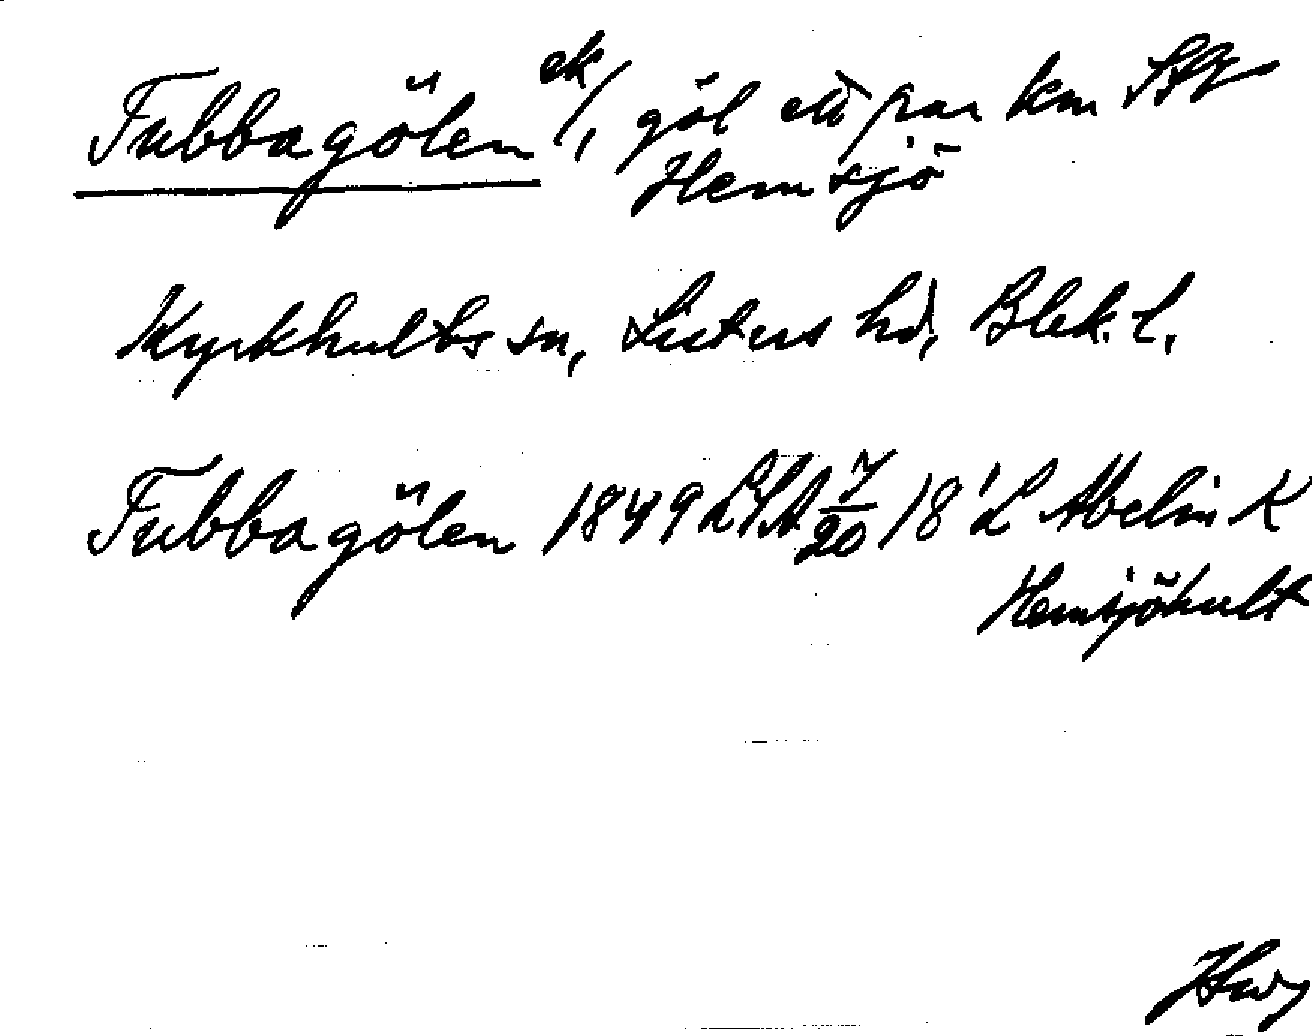 Tubbagölen ek/, göl ett par km
Hemsjö
Kyrkhults sn, Listers hd, Blek. l.
Tubbagölen 1849 LSA 7/20 18' L Abelin K
Hemsjöhult